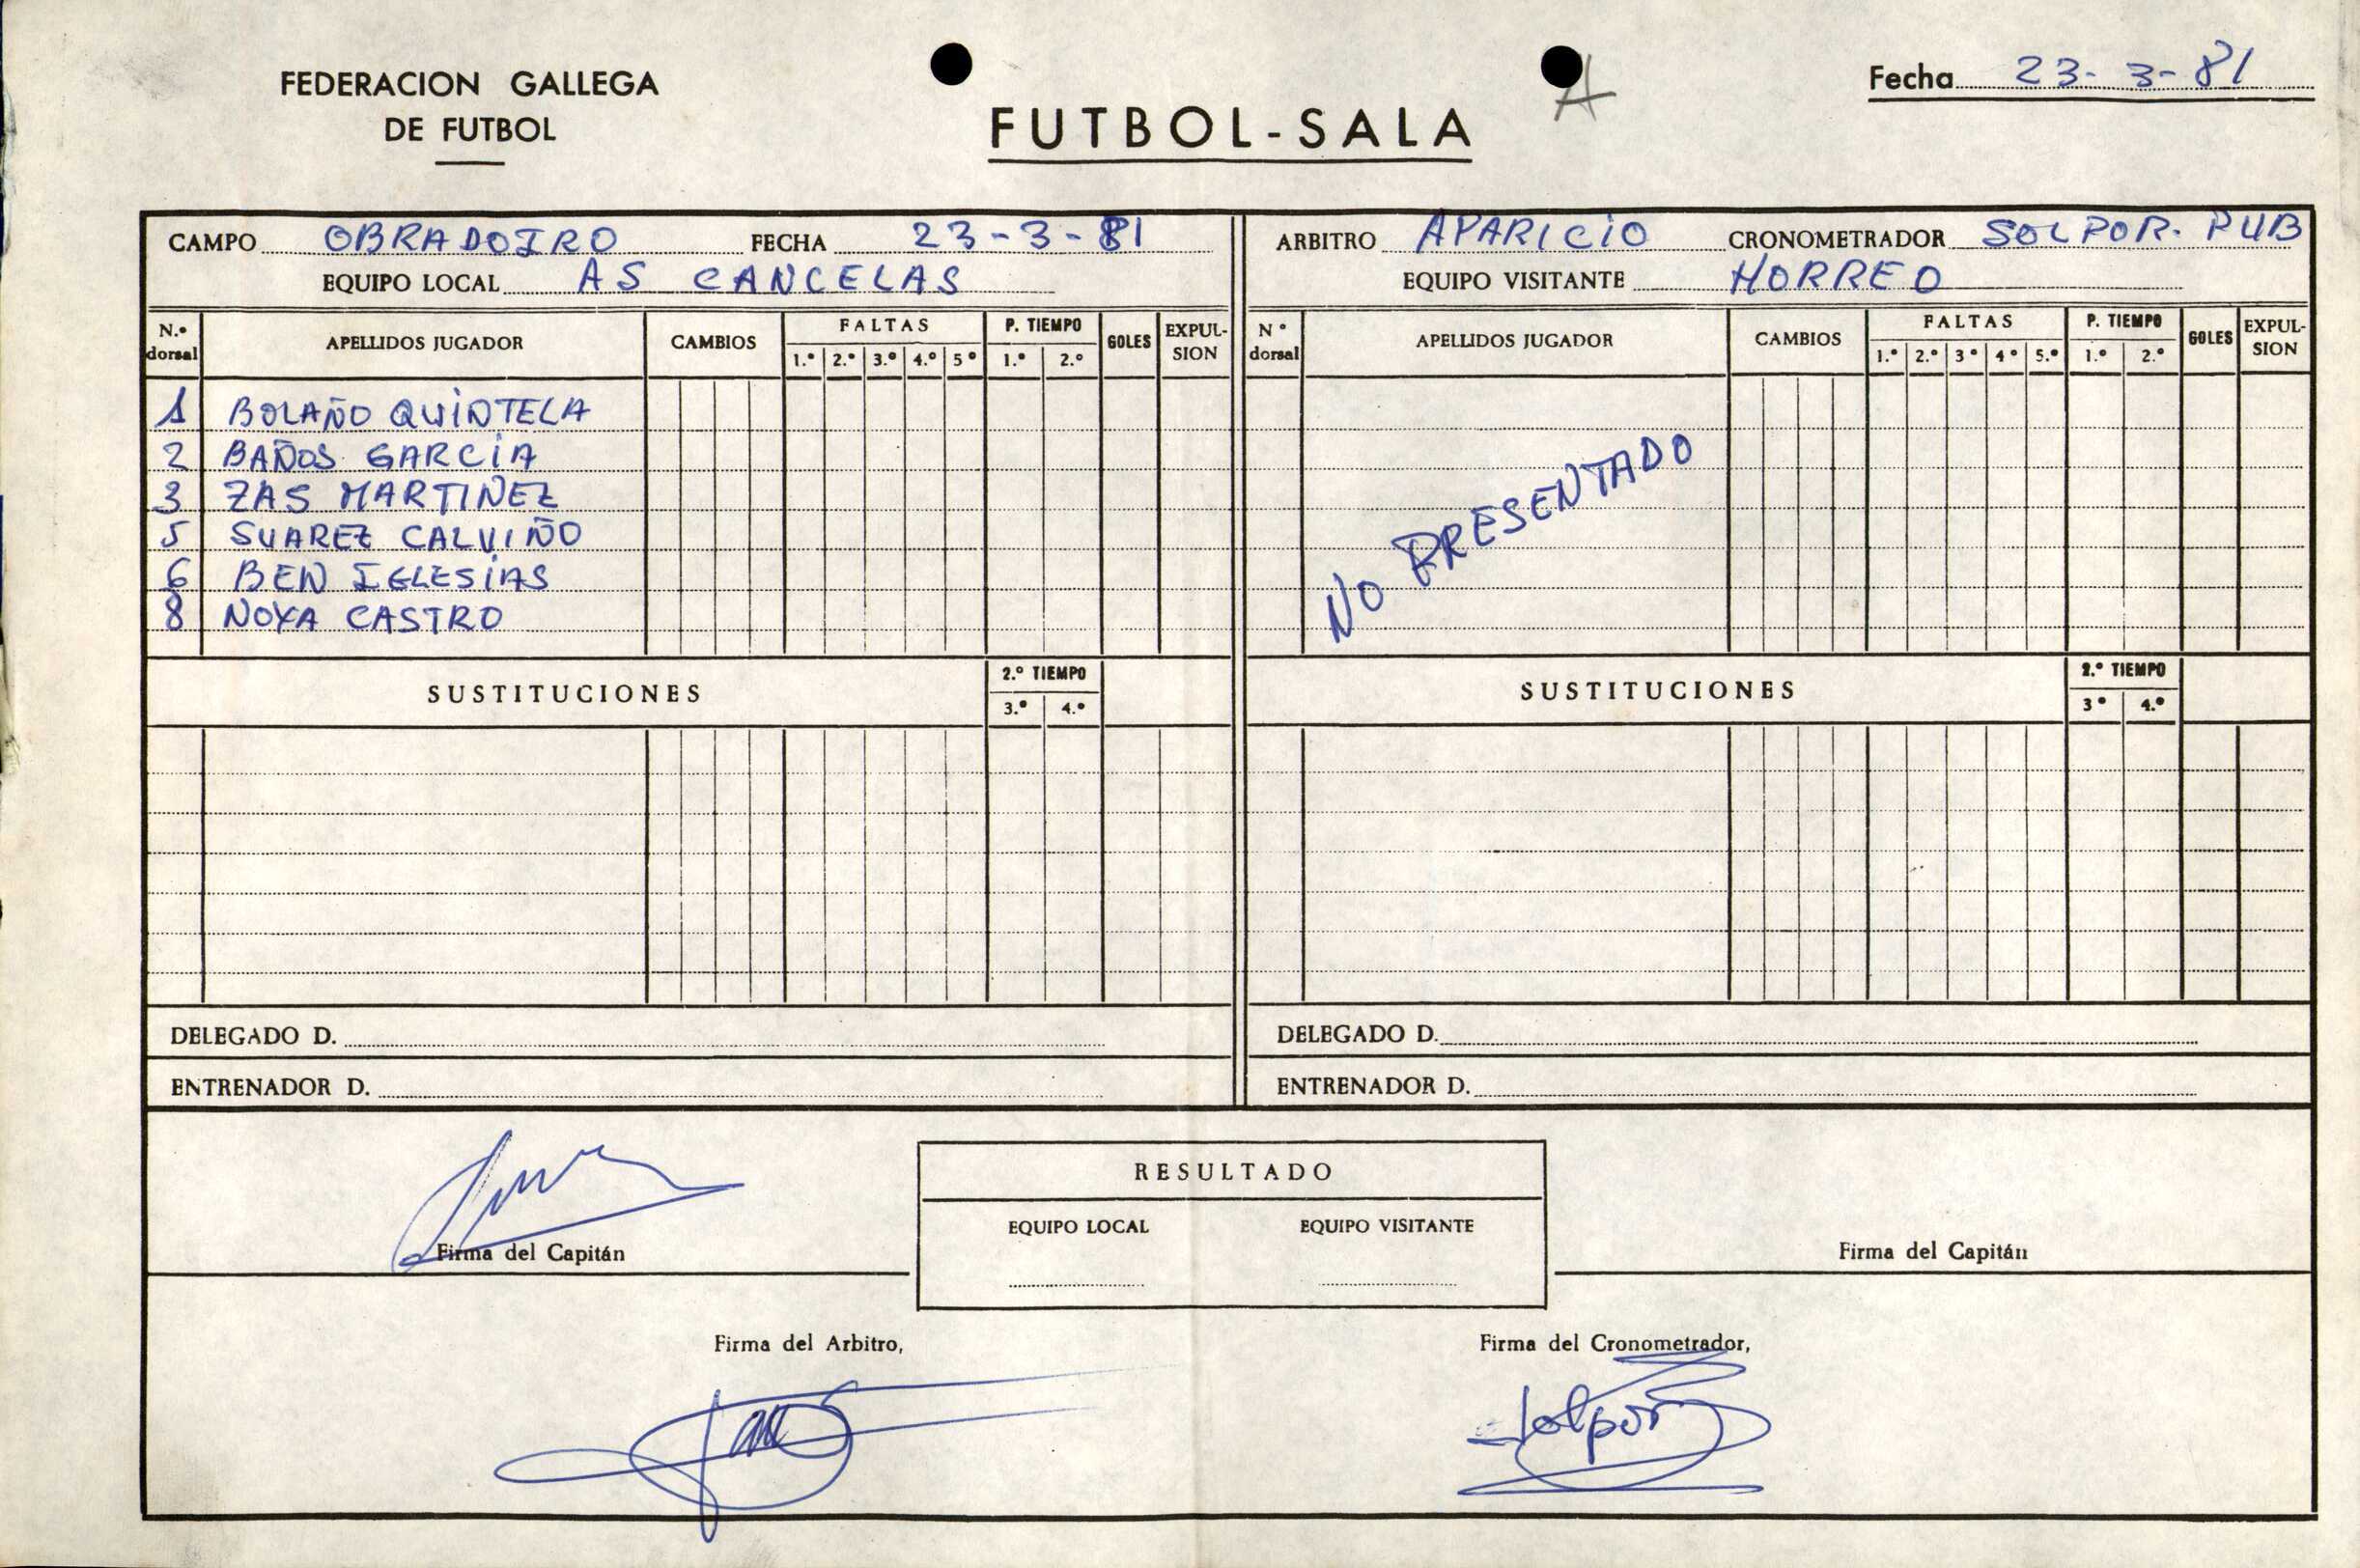 FEDERACION GALLEGA
DE FUTBOL
FUTBOL-SALA
A
Fecha 23-3-81
CAMPO OBRADOIRO FECHA 23-3-81
EQUIPO LOCAL AS CANCELAS
ARBITRO APARICIO CRONOMETRADOR SOLPOR. PUB
EQUIPO VISITANTE HORREO
N.º dorsal APELLIDOS JUGADOR CAMBIOS FALTAS 1.º 2.º 3.º 4.º 5º P. TIEMPO 1.º 2.º GOLES EXPUL-SION
1 BOLAÑO QUINTELA
2 BAÑOS GARCIA
3 ZAS MARTINEZ
5 SUAREZ CALVIÑO
6 BEN IGLESIAS
8 NOYA CASTRO
SUSTITUCIONES 2.º TIEMPO 3.º 4.º
DELEGADO D.
ENTRENADOR D.
Nº dorsal APELLIDOS JUGADOR CAMBIOS FALTAS 1.º 2.º 3º 4º 5.º P. TIEMPO 1.º 2.º GOLES EXPUL-SION
NO PRESENTADO
SUSTITUCIONES 2.º TIEMPO 3º 4.º
DELEGADO D.
ENTRENADOR D.
Firma del Capitán
RESULTADO
EQUIPO LOCAL EQUIPO VISITANTE
Firma del Capitán
Firma del Arbitro,
Firma del Cronometrador,
Solpor